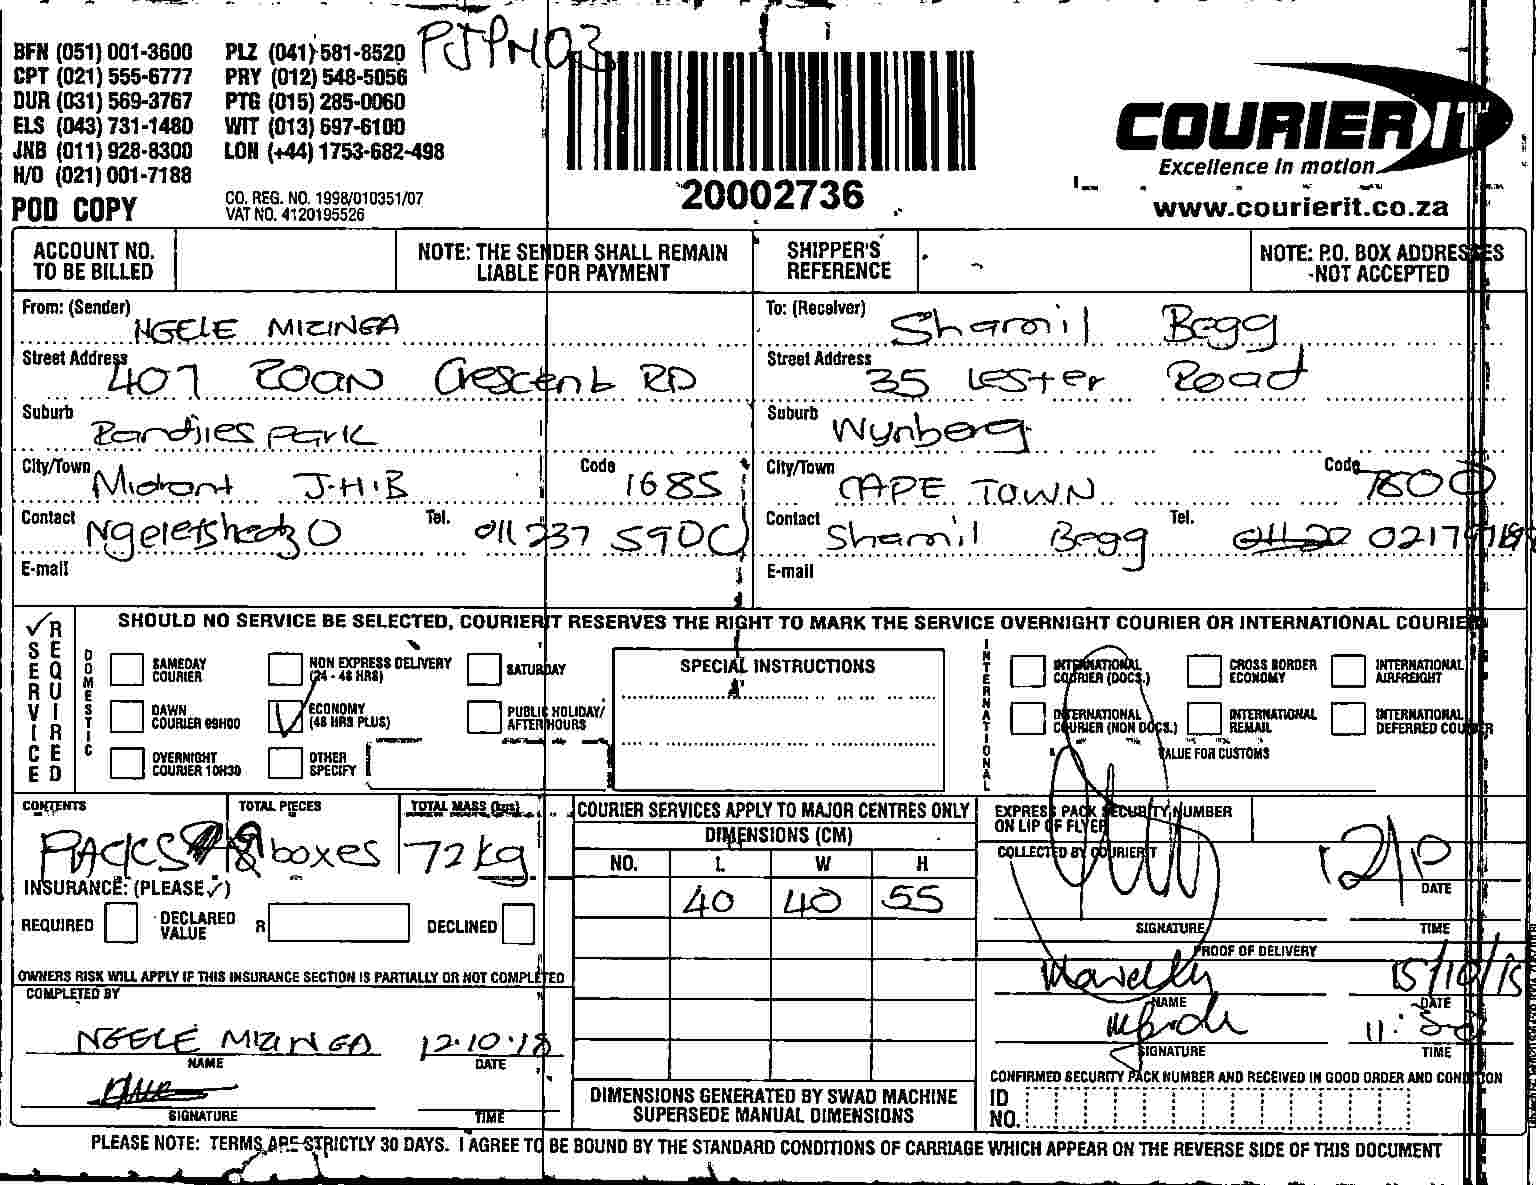 PJPN03
BFN (051) 001-3600 PLZ (041) 581-8520
CPT (021) 555-6777 PRY (012) 548-5056
DUR (031) 569-3767 PTG (015) 285-0060
ELS (043) 731-1480 WIT (013) 697-6100
JNB (011) 928-8300 LON (+44) 1753-682-498
H/O (021) 001-7188
POD COPY
CO. REG. NO. 1998/010351/07
VAT NO. 4120195526
20002736
COURIER IT
Excellence in motion
www.courierit.co.za
ACCOUNT NO. TO BE BILLED
NOTE: THE SENDER SHALL REMAIN LIABLE FOR PAYMENT
SHIPPER'S REFERENCE
NOTE: P.O. BOX ADDRESSES -NOT ACCEPTED
From: (Sender) NGELE MIZINGA
Street Address 407 ROAN Crescent RD
Suburb Randjies PARK
City/Town Midrant J.H.B Code 1685
Contact Tel. 011 237 5900
E-mail
To: (Receiver) Shamil Begg
Street Address 35 Lester Road
Suburb Wynberg
City/Town CAPE TOWN Code 7800
Contact Shamil Begg Tel.
E-mail
SERVICE REQUIRED
SHOULD NO SERVICE BE SELECTED, COURIERIT RESERVES THE RIGHT TO MARK THE SERVICE OVERNIGHT COURIER OR INTERNATIONAL COURIER
DOMESTIC
SAMEDAY COURIER
NON EXPRESS DELIVERY (24 - 48 HRS)
SATURDAY
DAWN COURIER 09H00
ECONOMY (48 HRS PLUS)
PUBLIC HOLIDAY/ AFTER HOURS
OVERNIGHT COURIER 10H30
OTHER SPECIFY
SPECIAL INSTRUCTIONS
INTERNATIONAL
INTERNATIONAL COURIER (DOCS.)
CROSS BORDER ECONOMY
INTERNATIONAL AIRFREIGHT
INTERNATIONAL COURIER (NON DOCS.)
INTERNATIONAL REMAIL
INTERNATIONAL DEFERRED COURIER
VALUE FOR CUSTOMS
CONTENTS PACKS
TOTAL PIECES 8 boxes
TOTAL MASS (kgs) 72kg
INSURANCE: (PLEASE ✓)
REQUIRED DECLARED VALUE R DECLINED
OWNERS RISK WILL APPLY IF THIS INSURANCE SECTION IS PARTIALLY OR NOT COMPLETED
COMPLETED BY
NGELE MIZINGA 12.10.18
NAME DATE
SIGNATURE TIME
COURIER SERVICES APPLY TO MAJOR CENTRES ONLY
DIMENSIONS (CM)
NO. L W H
40 40 55
DIMENSIONS GENERATED BY SWAD MACHINE SUPERSEDE MANUAL DIMENSIONS
EXPRESS PACK SECURITY NUMBER ON LIP OF FLYER
COLLECTED BY COURIERIT
12/10
DATE
SIGNATURE TIME
PROOF OF DELIVERY
15/10/18
NAME DATE
SIGNATURE TIME
CONFIRMED SECURITY PACK NUMBER AND RECEIVED IN GOOD ORDER AND CONDITION
ID NO.
PLEASE NOTE: TERMS ARE STRICTLY 30 DAYS. I AGREE TO BE BOUND BY THE STANDARD CONDITIONS OF CARRIAGE WHICH APPEAR ON THE REVERSE SIDE OF THIS DOCUMENT